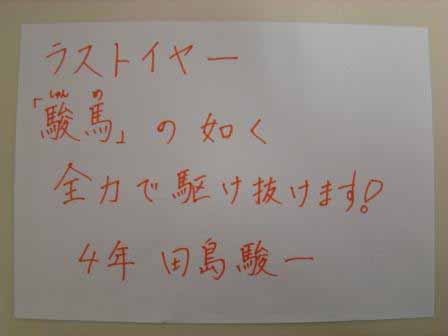 ラストイヤー
「駿馬」の如く
全力で駆け抜けます!
4年 田島駿一